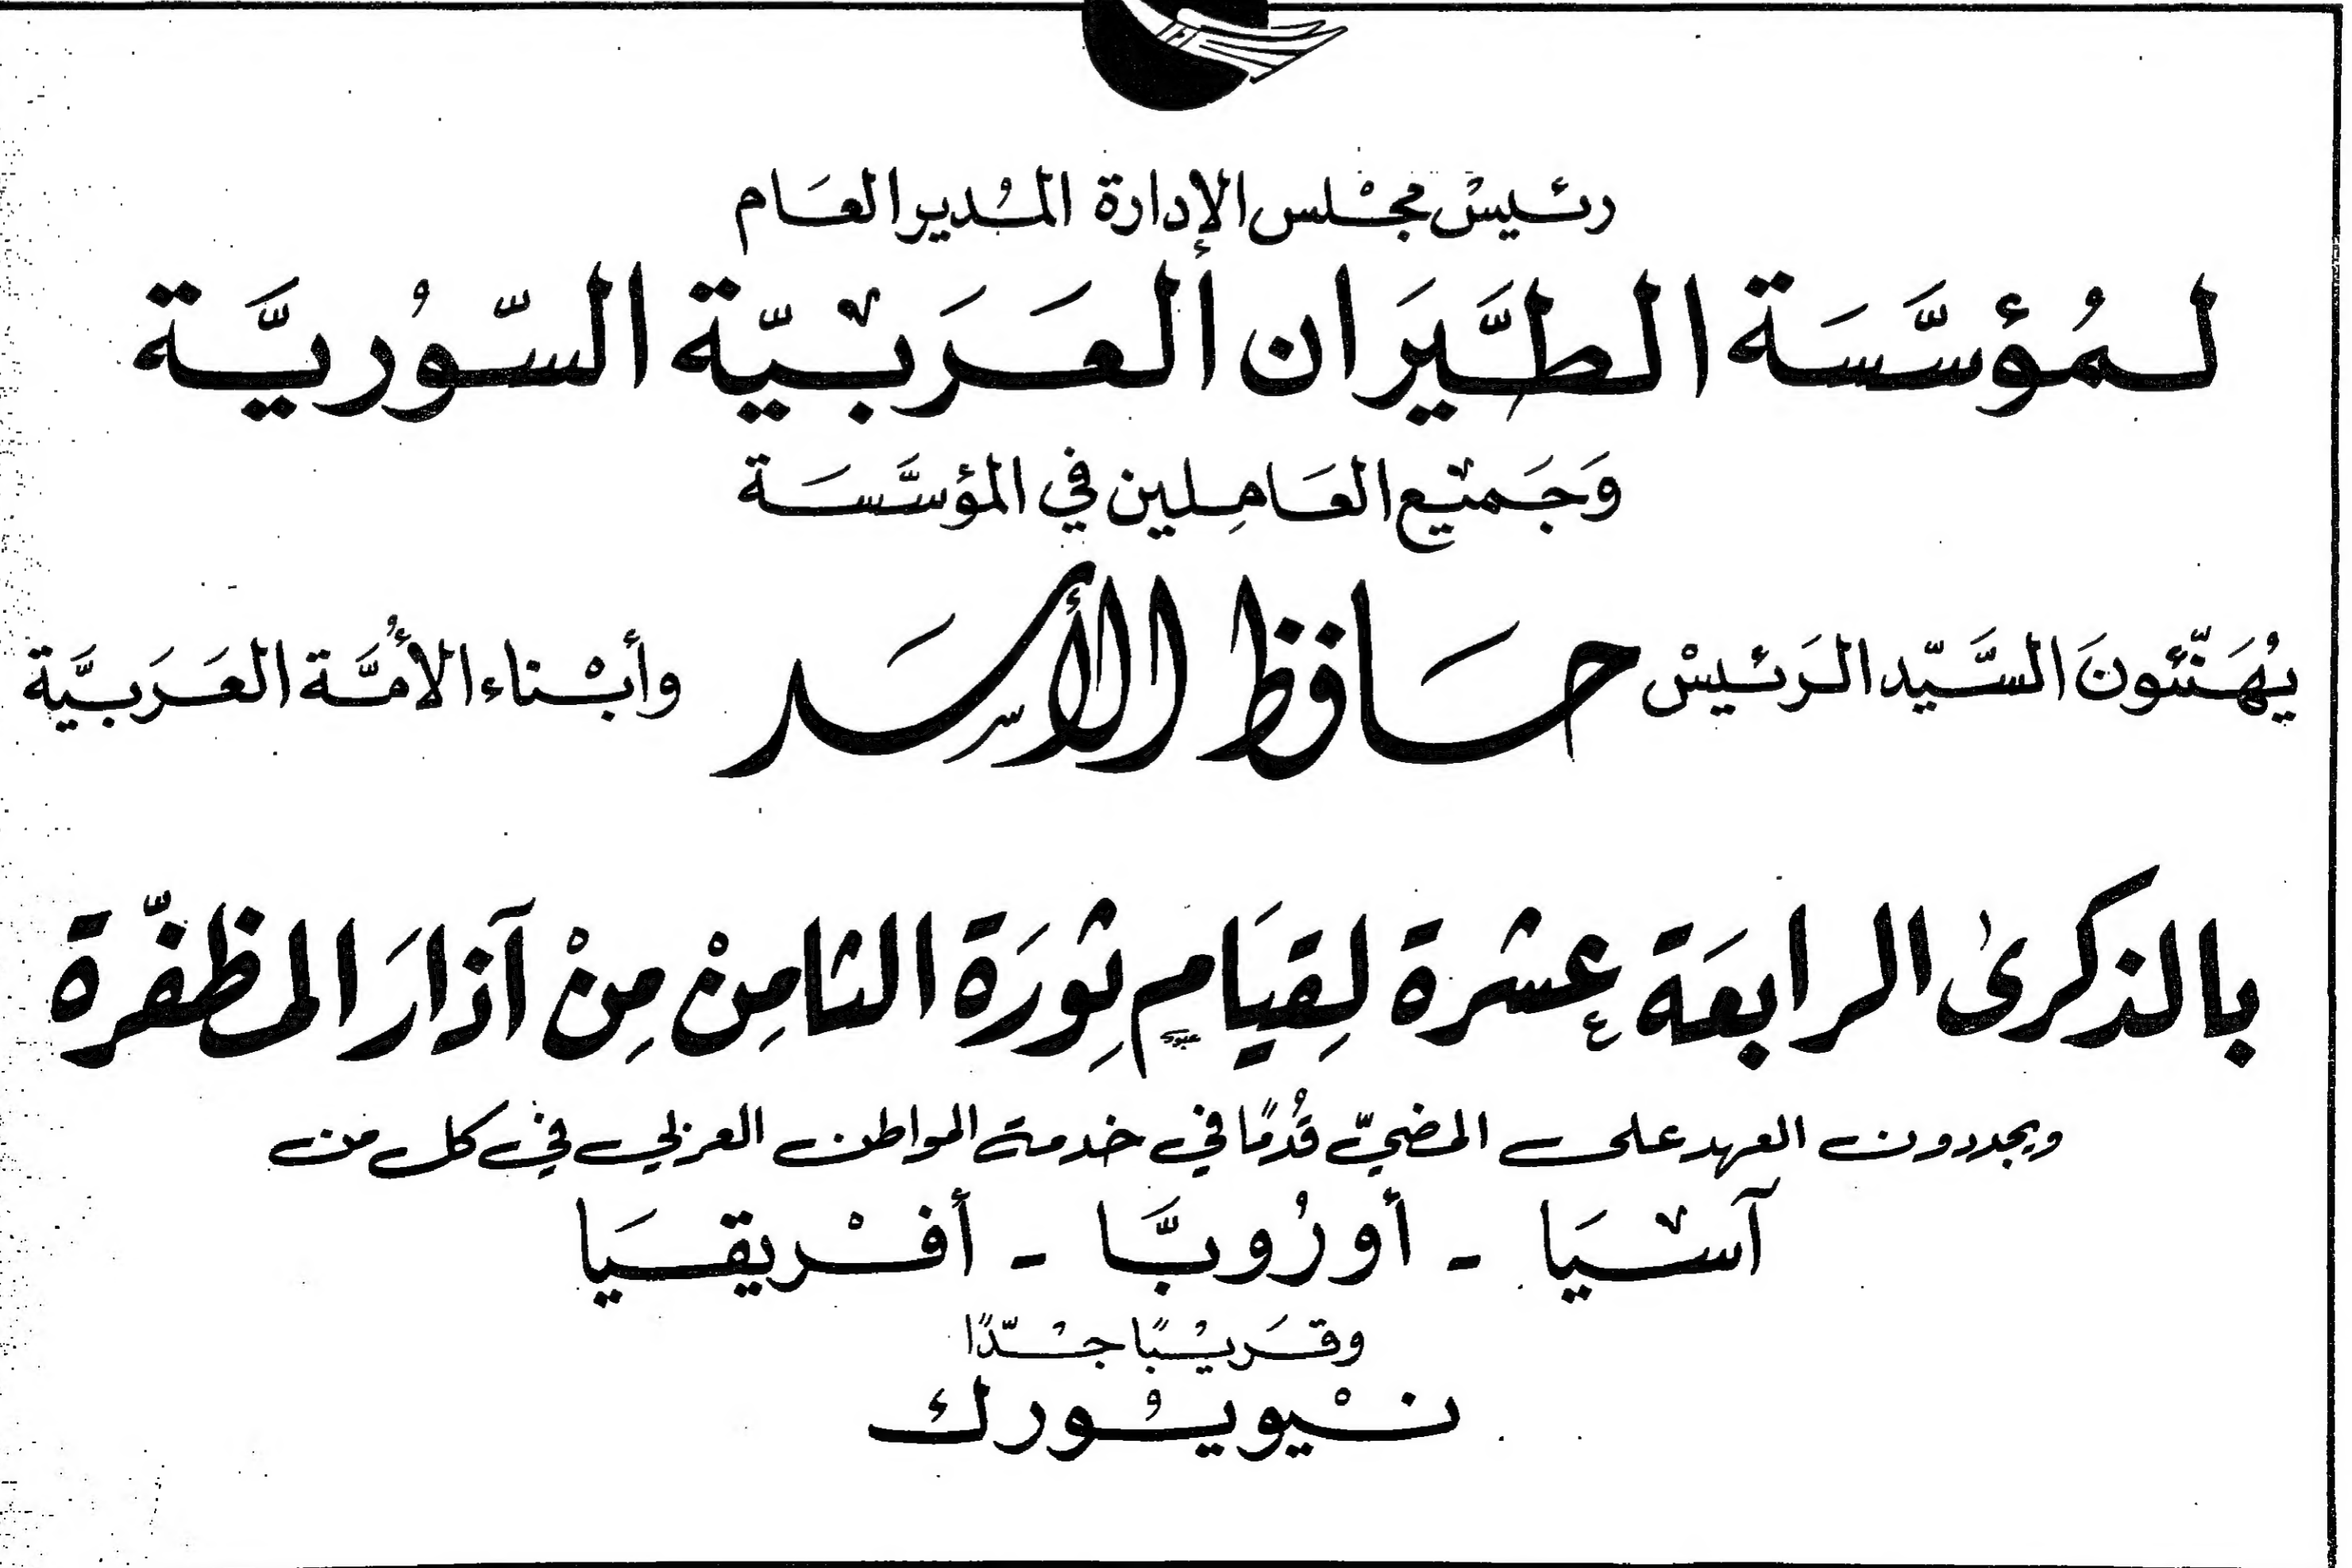 رئيسْ مجْلس الإدارة المُدير العَام
لمُؤسَّسَة الطَّيَران العَرَبيَّة السّوُريَّة
وَجَميْع العَامِلين في المؤسَّسَة
يُهَنّئونَ السَّيّد الرَئيسْ حَافظ الأسَد وأبْناء الأمَُّة العَرَبيَّة
بالذكرىٰ الرابعَة عشرة لِقيَام ثورَة الثامِنْ مِنْ آذارَ المظفّرة
عبود
ويجددون العهد على المضيّ قُدُمًا في خدمة المواطن العربي في كل من
آسْيَا - أورُوبَّا - أفْريقيَا
وقَريْبًا جْدّاً
نيْويوُرك